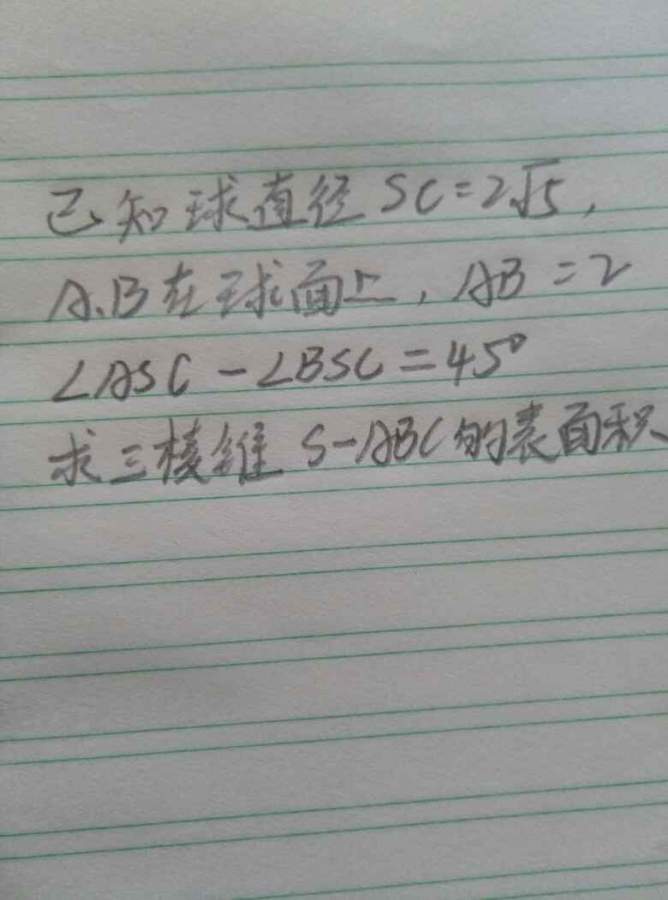 已知球直径 SC=2√5,
A、B在球面上, AB=2
∠ASC-∠BSC=45°
求三棱锥 S-ABC的表面积